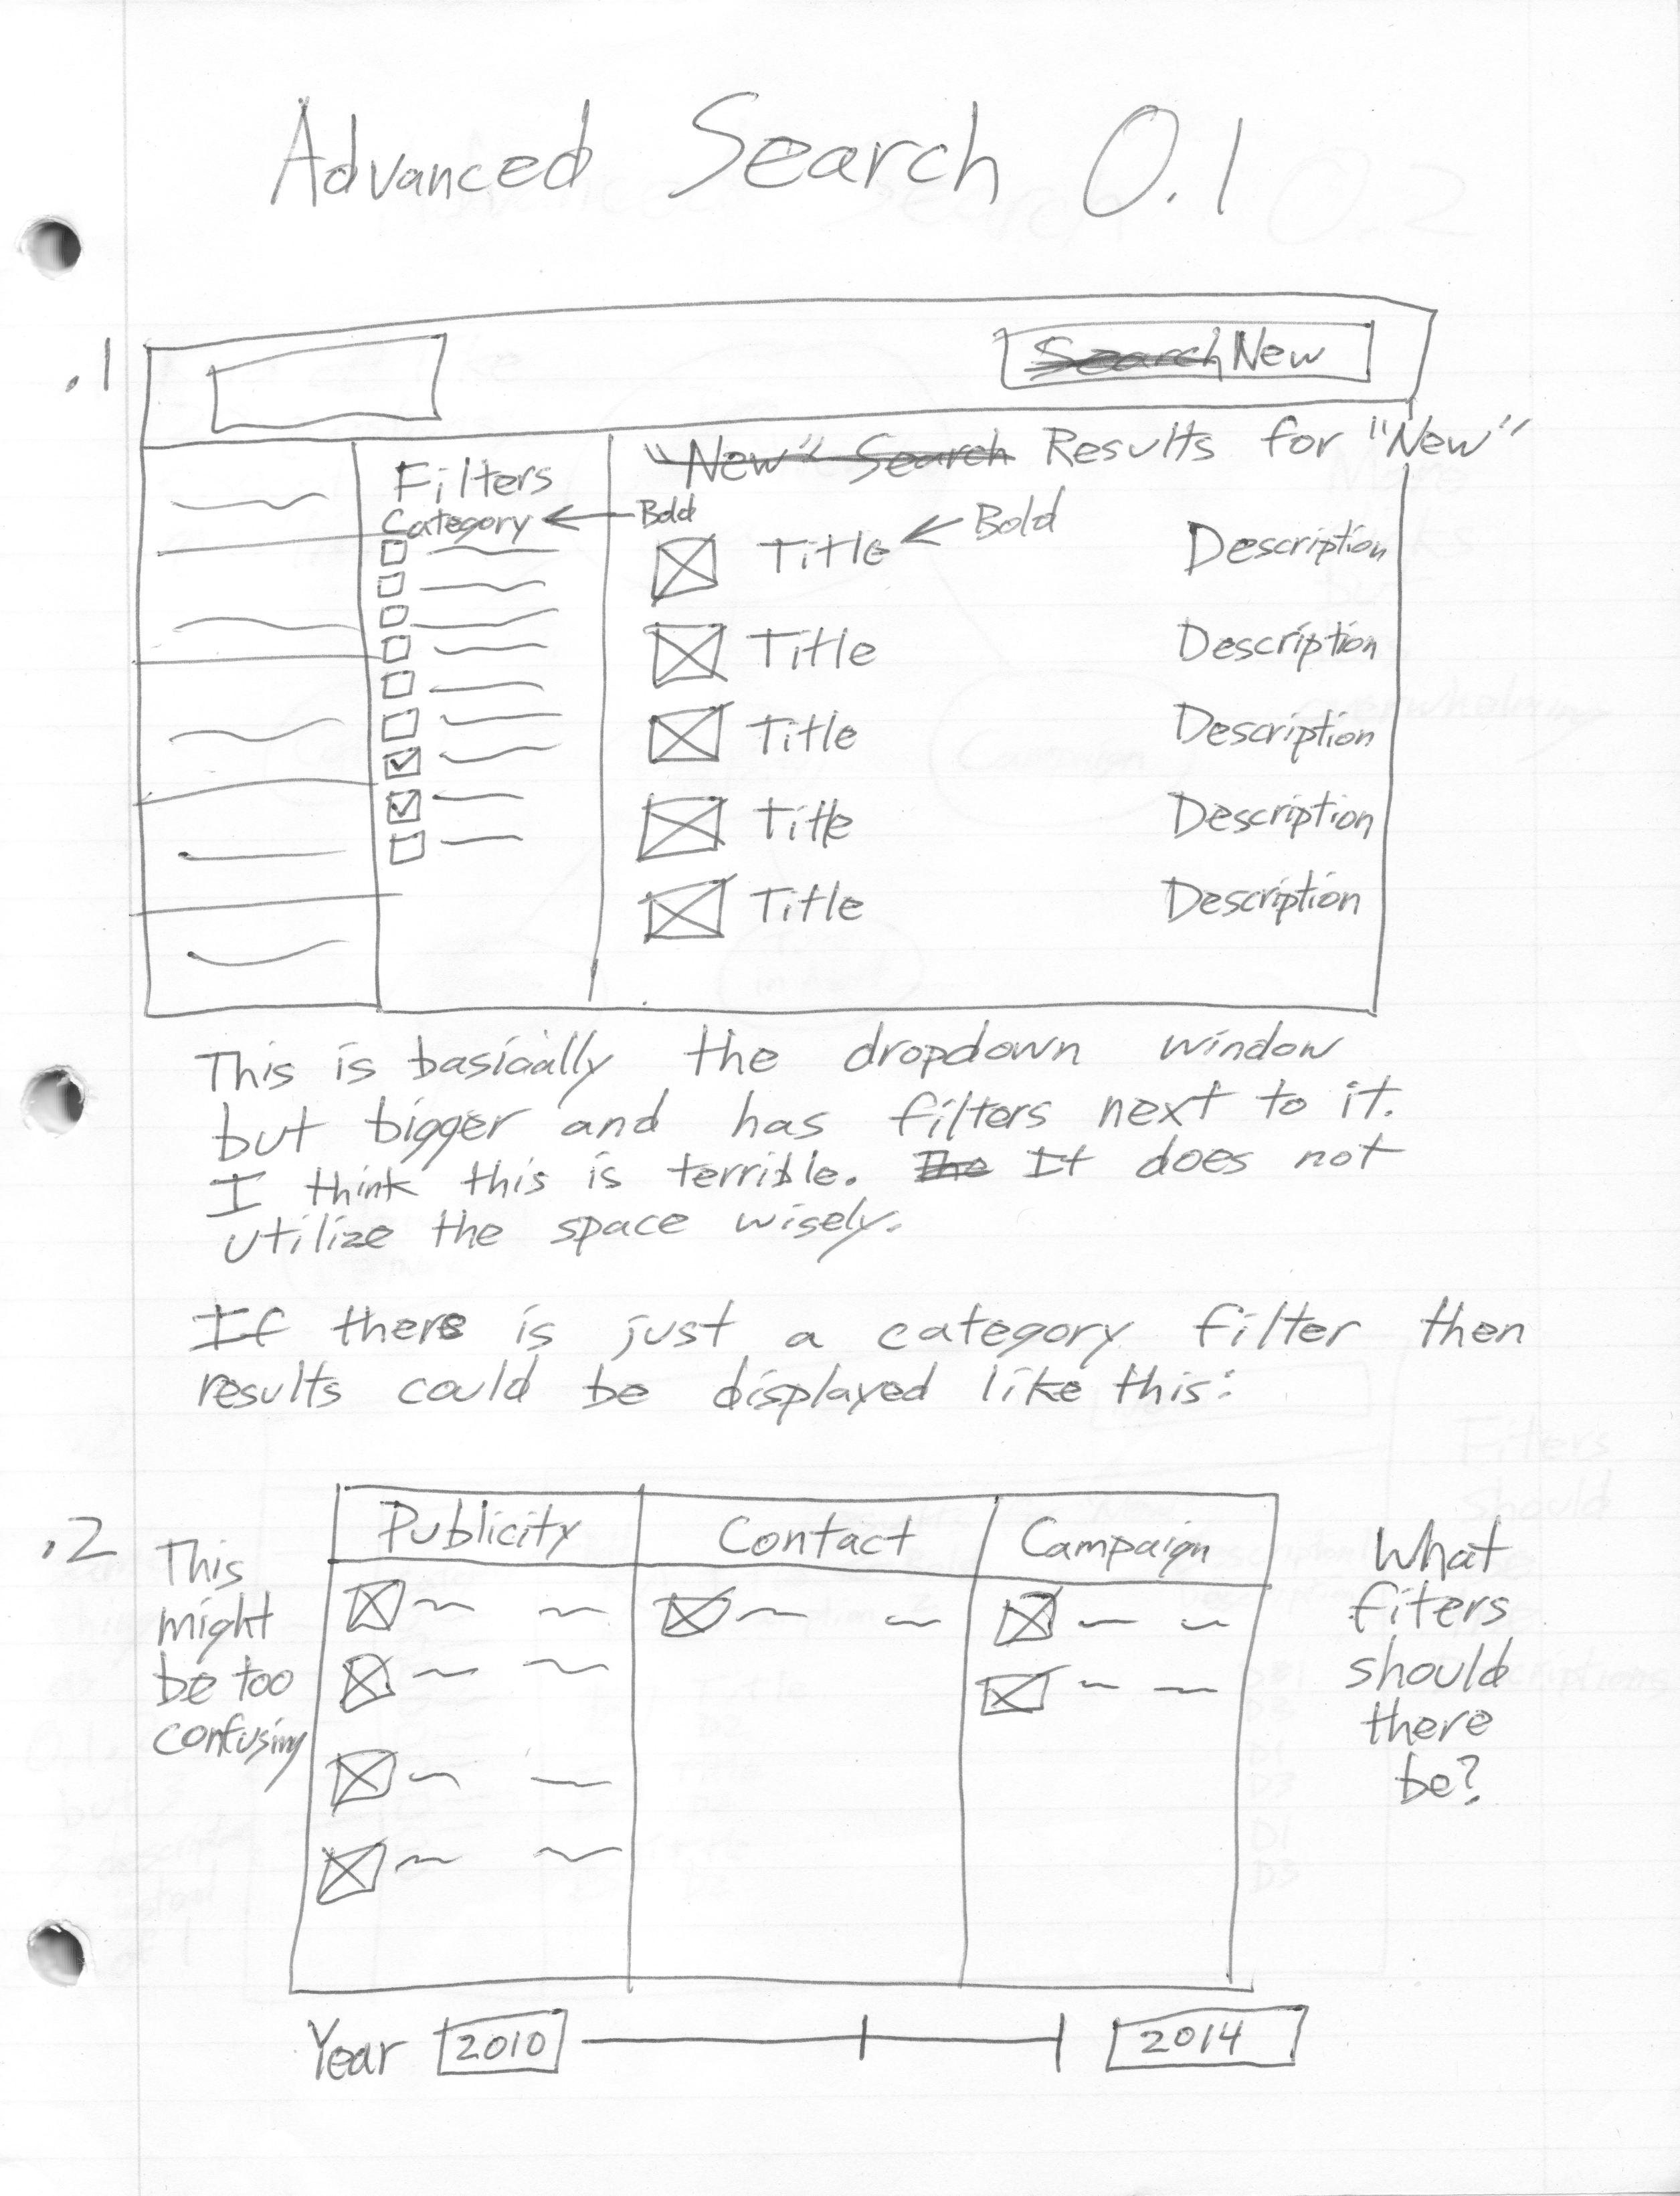 Advanced Search 0.1
.1
Search New
"New" Search Results for "New"
Filters
Category ← Bold
Title ← Bold Description
Title Description
Title Description
Title Description
Title Description
This is basically the dropdown window
but bigger and has filters next to it.
I think this is terrible. The It does not
utilize the space wisely.
If there is just a category filter then
results could be displayed like this:
.2
This
might
be too
confusing
Publicity Contact Campaign
What
fiters
should
there
be?
Year 2010 2014